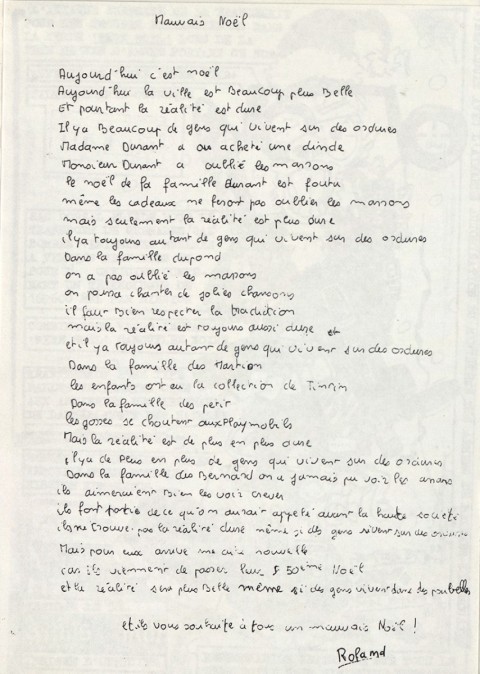 Mauvais Noël
Aujourd'hui c'est noël
Aujourd'hui la ville est Beaucoup plus Belle
Et pourtant la réalité est dure
Il ya Beaucoup de gens qui vivent sur des ordures
Madame Durant a ou acheté une dinde
Monsieur Durant a oublié les marrons
le noël de la famille durant est foutu
même les cadeaux ne feront pas oublier les marrons
mais seulement la réalité est plus dure
il ya toujours autant de gens qui vivent sur des ordures
Dans la famille dupond
on a pas oublié les marrons
on pourra chanter de jolies chansons
il faut Bien respecter la tradition
mais la réalité est toujours aussi dure et
et il ya toujours autant de gens qui vivent sur des ordures
Dans la famille des Martion
les enfants ont eu la collection de Tintin
Dans la famille des petit
les gosses se shoutent aux Playmobils
Mais la réalité est de plus en plus dure
il ya de Plus en plus de gens qui vivent sur des ordures
Dans la famille des Bernard on a jamais pu voir les
ils aimeraient Bien les voir crever
ils font partie de ce qu'on aurait appelé avant la haute société
ils ne trouve pas la réalité dure même si des gens vivent sur des ordures
Mais pour eux arrive une nouvelle
car ils viennent de passer leur 50ème Noël
et la réalité sera plus Belle même si des gens vivent dans des poubelles
et ils vous souhaite à tous un mauvais Noël !
Roland